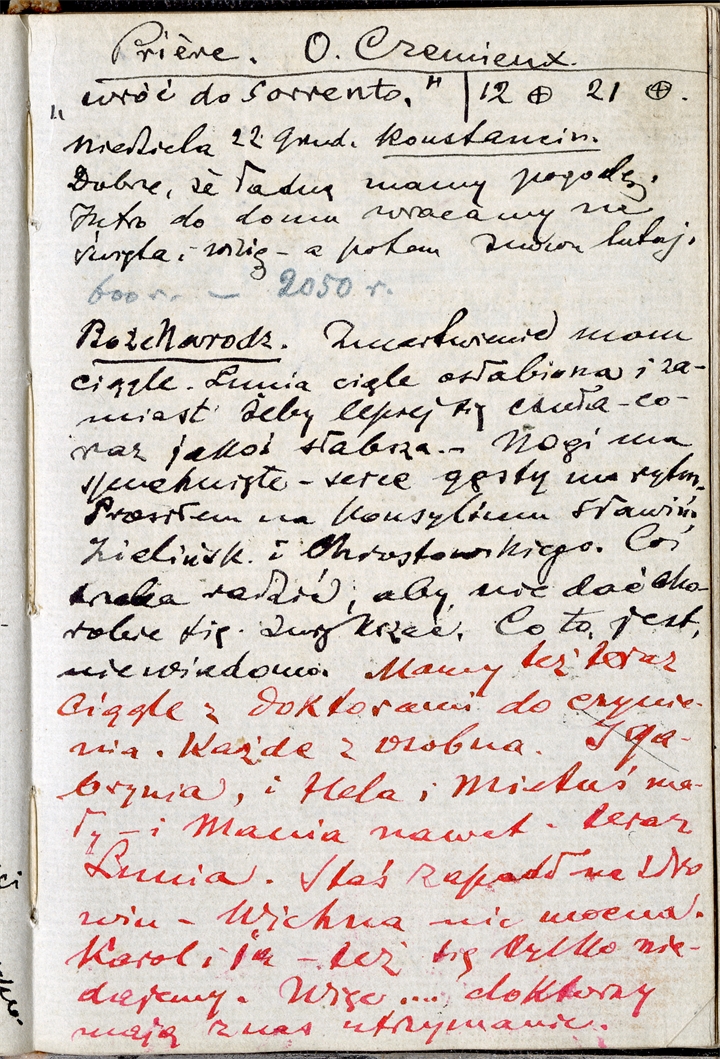 Prière. O. Cremieux.
„wróć do Sorrento." | 12 ⊕ 21 ⊕.
niedziela 22 Grud. Konstancin.
Dobrze, że ładną mamy pogodę.
Jutro do domu wracamy na
święta i wilię – a potem znowu tutaj.
600 r. — 2050 r.
BożeNarodz. Zmartwienie mam
ciągle. Lunia ciągle osłabiona i za-
miast żeby lepiej się czuła – co-
raz jakoś słabsza. – Nogi ma
spuchnięte – serce gęsty ma rytm.
Prosiłem na konsylium Sławiń.
Zielińsk. i Chrostowskiego. Coś
trzeba radzić, aby nie dać cho-
robie się zwiększać. Co to jest,
niewiadomo. Mamy też teraz
ciągle z doktorami do czynie-
nia. Każde z osobna. I ga-
brynia, i Hela i Mietuś ma-
ły – i Mania nawet – teraz
Lunia. Staś zapadł na zdro
wiu – Wichna nie mocna.
Karol i ja – też się tylko nie-
dajemy. Więc .... doktorzy
mają z nas utrzymanie.